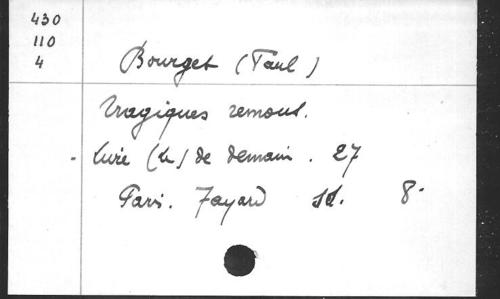 430
110
4
Bourget (Paul)
Tragiques remous.
Livre (Le) de demain. 27
Paris. Fayard sd. 8°